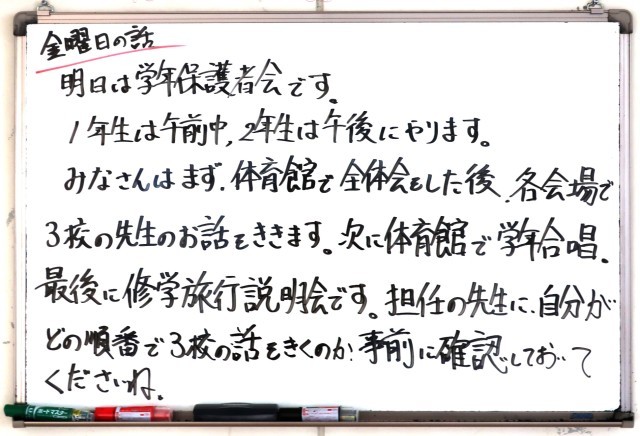 金曜日の話
明日は学年保護者会です。
1年生は午前中,2年生は午後にやります。
みなさんはまず.体育館で全体会をした後.各会場で
3校の先生のお話をききます。次に体育館で学年合唱.
最後に修学旅行説明会です。担任の先生に.自分が
どの順番で3校の話をきくのか.事前に確認しておいて
くださいね。
ボードマスター